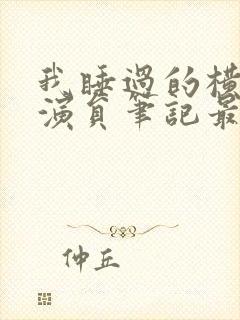 我睡過的橫
演員筆記最
仲丘